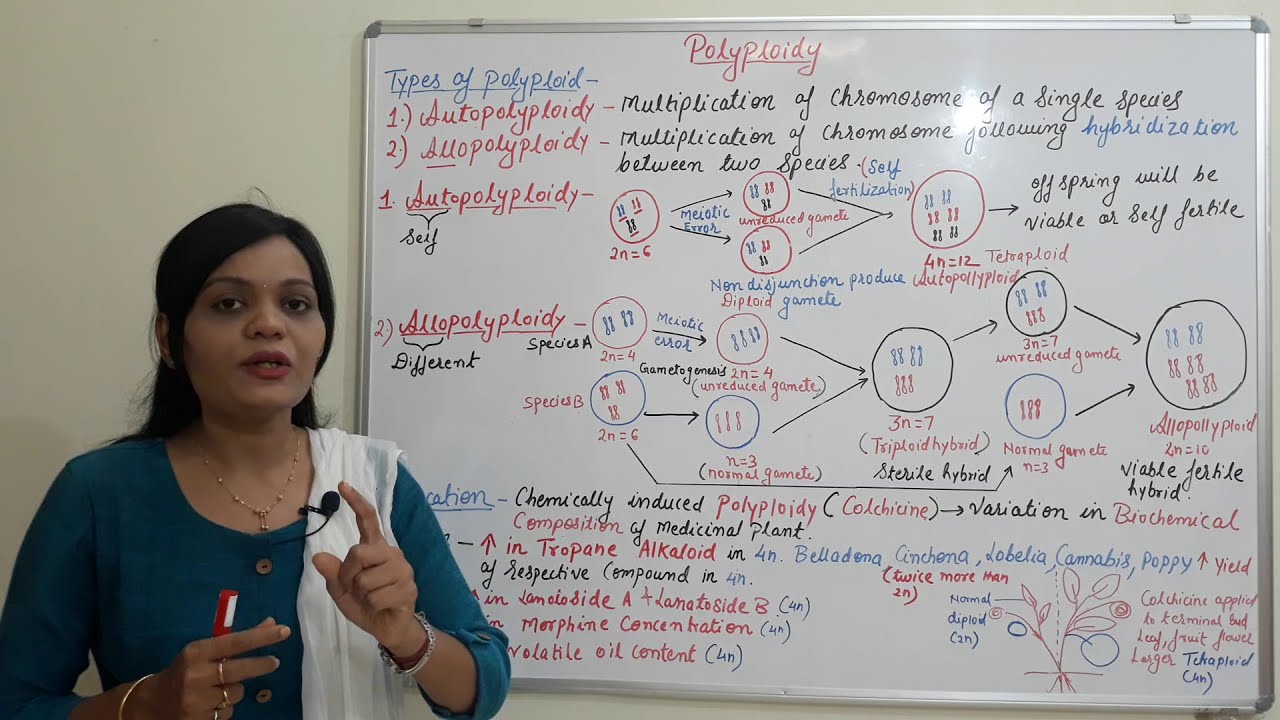 Polyploidy
Types of Polyploid -
1.) Autopolyploidy - Multiplication of chromosome of a single species
2.) Allopolyploidy - Multiplication of chromosome following hybridization
between two species.
1. Autopolyploidy -
Self
2n=6
Meiotic
Error
unreduced gamete
Non disjunction produce
Diploid gamete
(Self
fertilization)
4n=12 Tetraploid
Autopollyploid
offspring will be
viable or self fertile
2) Allopolyploidy -
Different
Species A
2n=4
Meiotic
error
Gametogenesis
2n=4
(unreduced gamete)
Species B
2n=6
n=3
(normal gamete)
3n=7
(Triploid hybrid)
Sterile hybrid
3n=7
unreduced gamete
Normal gamete
n=3
Allopollyploid
2n=10
Viable fertile
hybrid.
cation - Chemically induced Polyploidy (Colchicine) → Variation in Biochemical
Composition of Medicinal Plant.
- ↑ in Tropane Alkaloid in 4n. Belladona, Cinchona, Lobelia, Cannabis, Poppy ↑ Yield
of respective Compound in 4n.
(twice more than
2n)
in Lanatoside A + Lanatoside B (4n)
in Morphine Concentration (4n)
volatile oil content (4n)
Normal
diploid
(2n)
Colchicine applied
to terminal bud
Leaf, fruit flower
Larger Tetraploid
(4n)